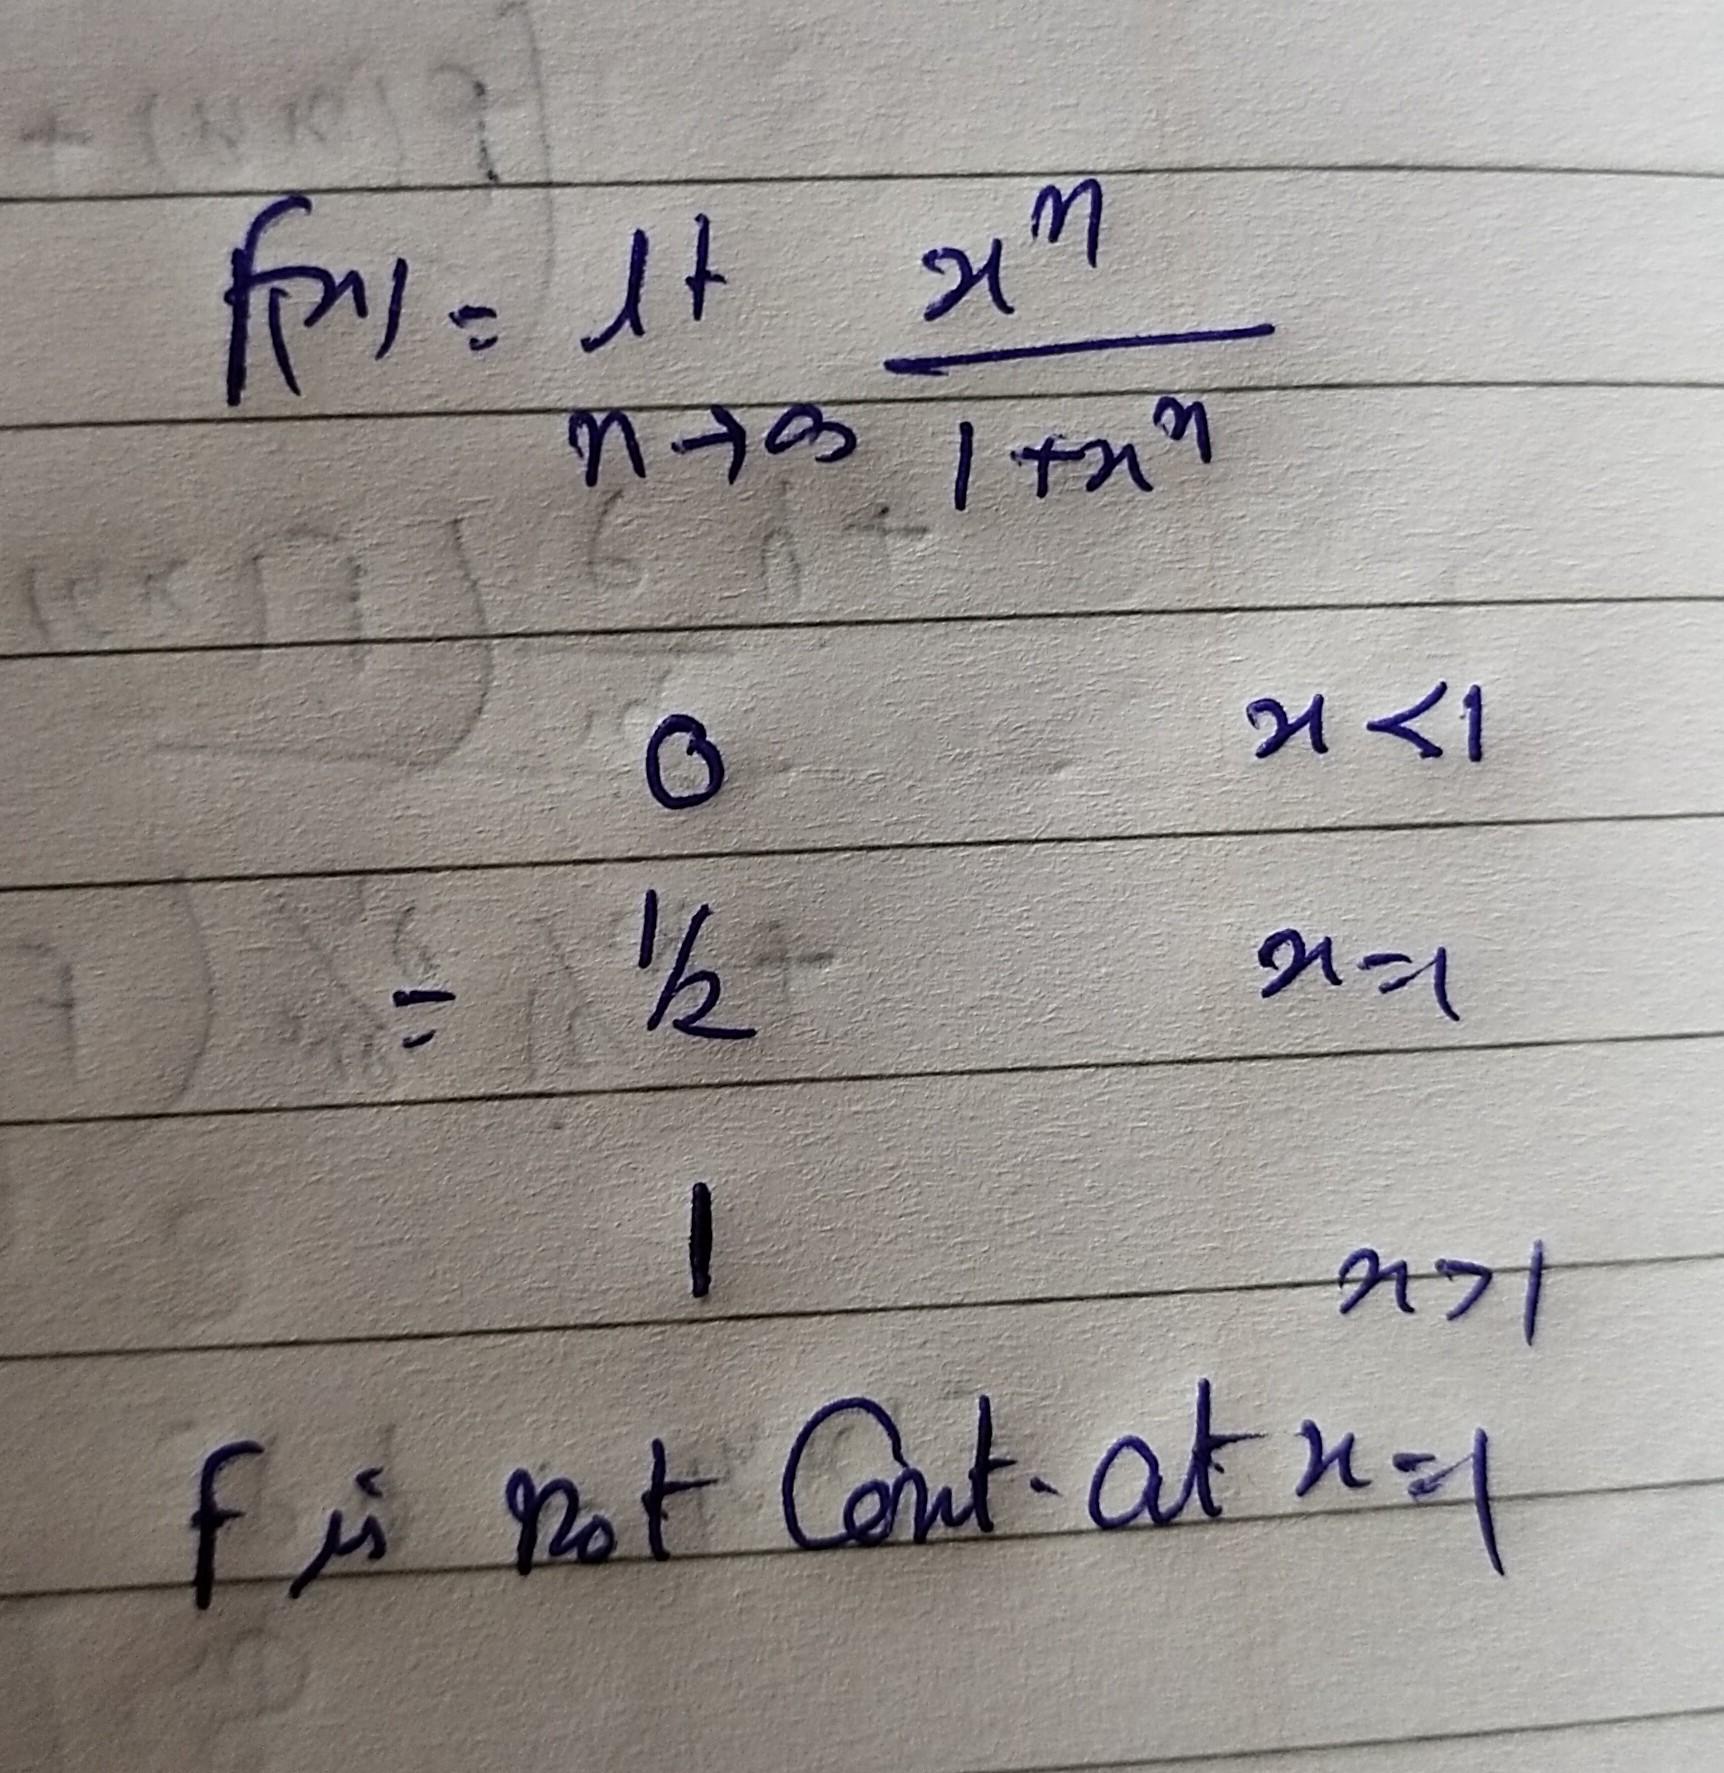 f(x) = lt x^n
n→∞ 1+x^n
0 x<1
= 1/2 x=1
1 x>1
f is not Cont. at x=1